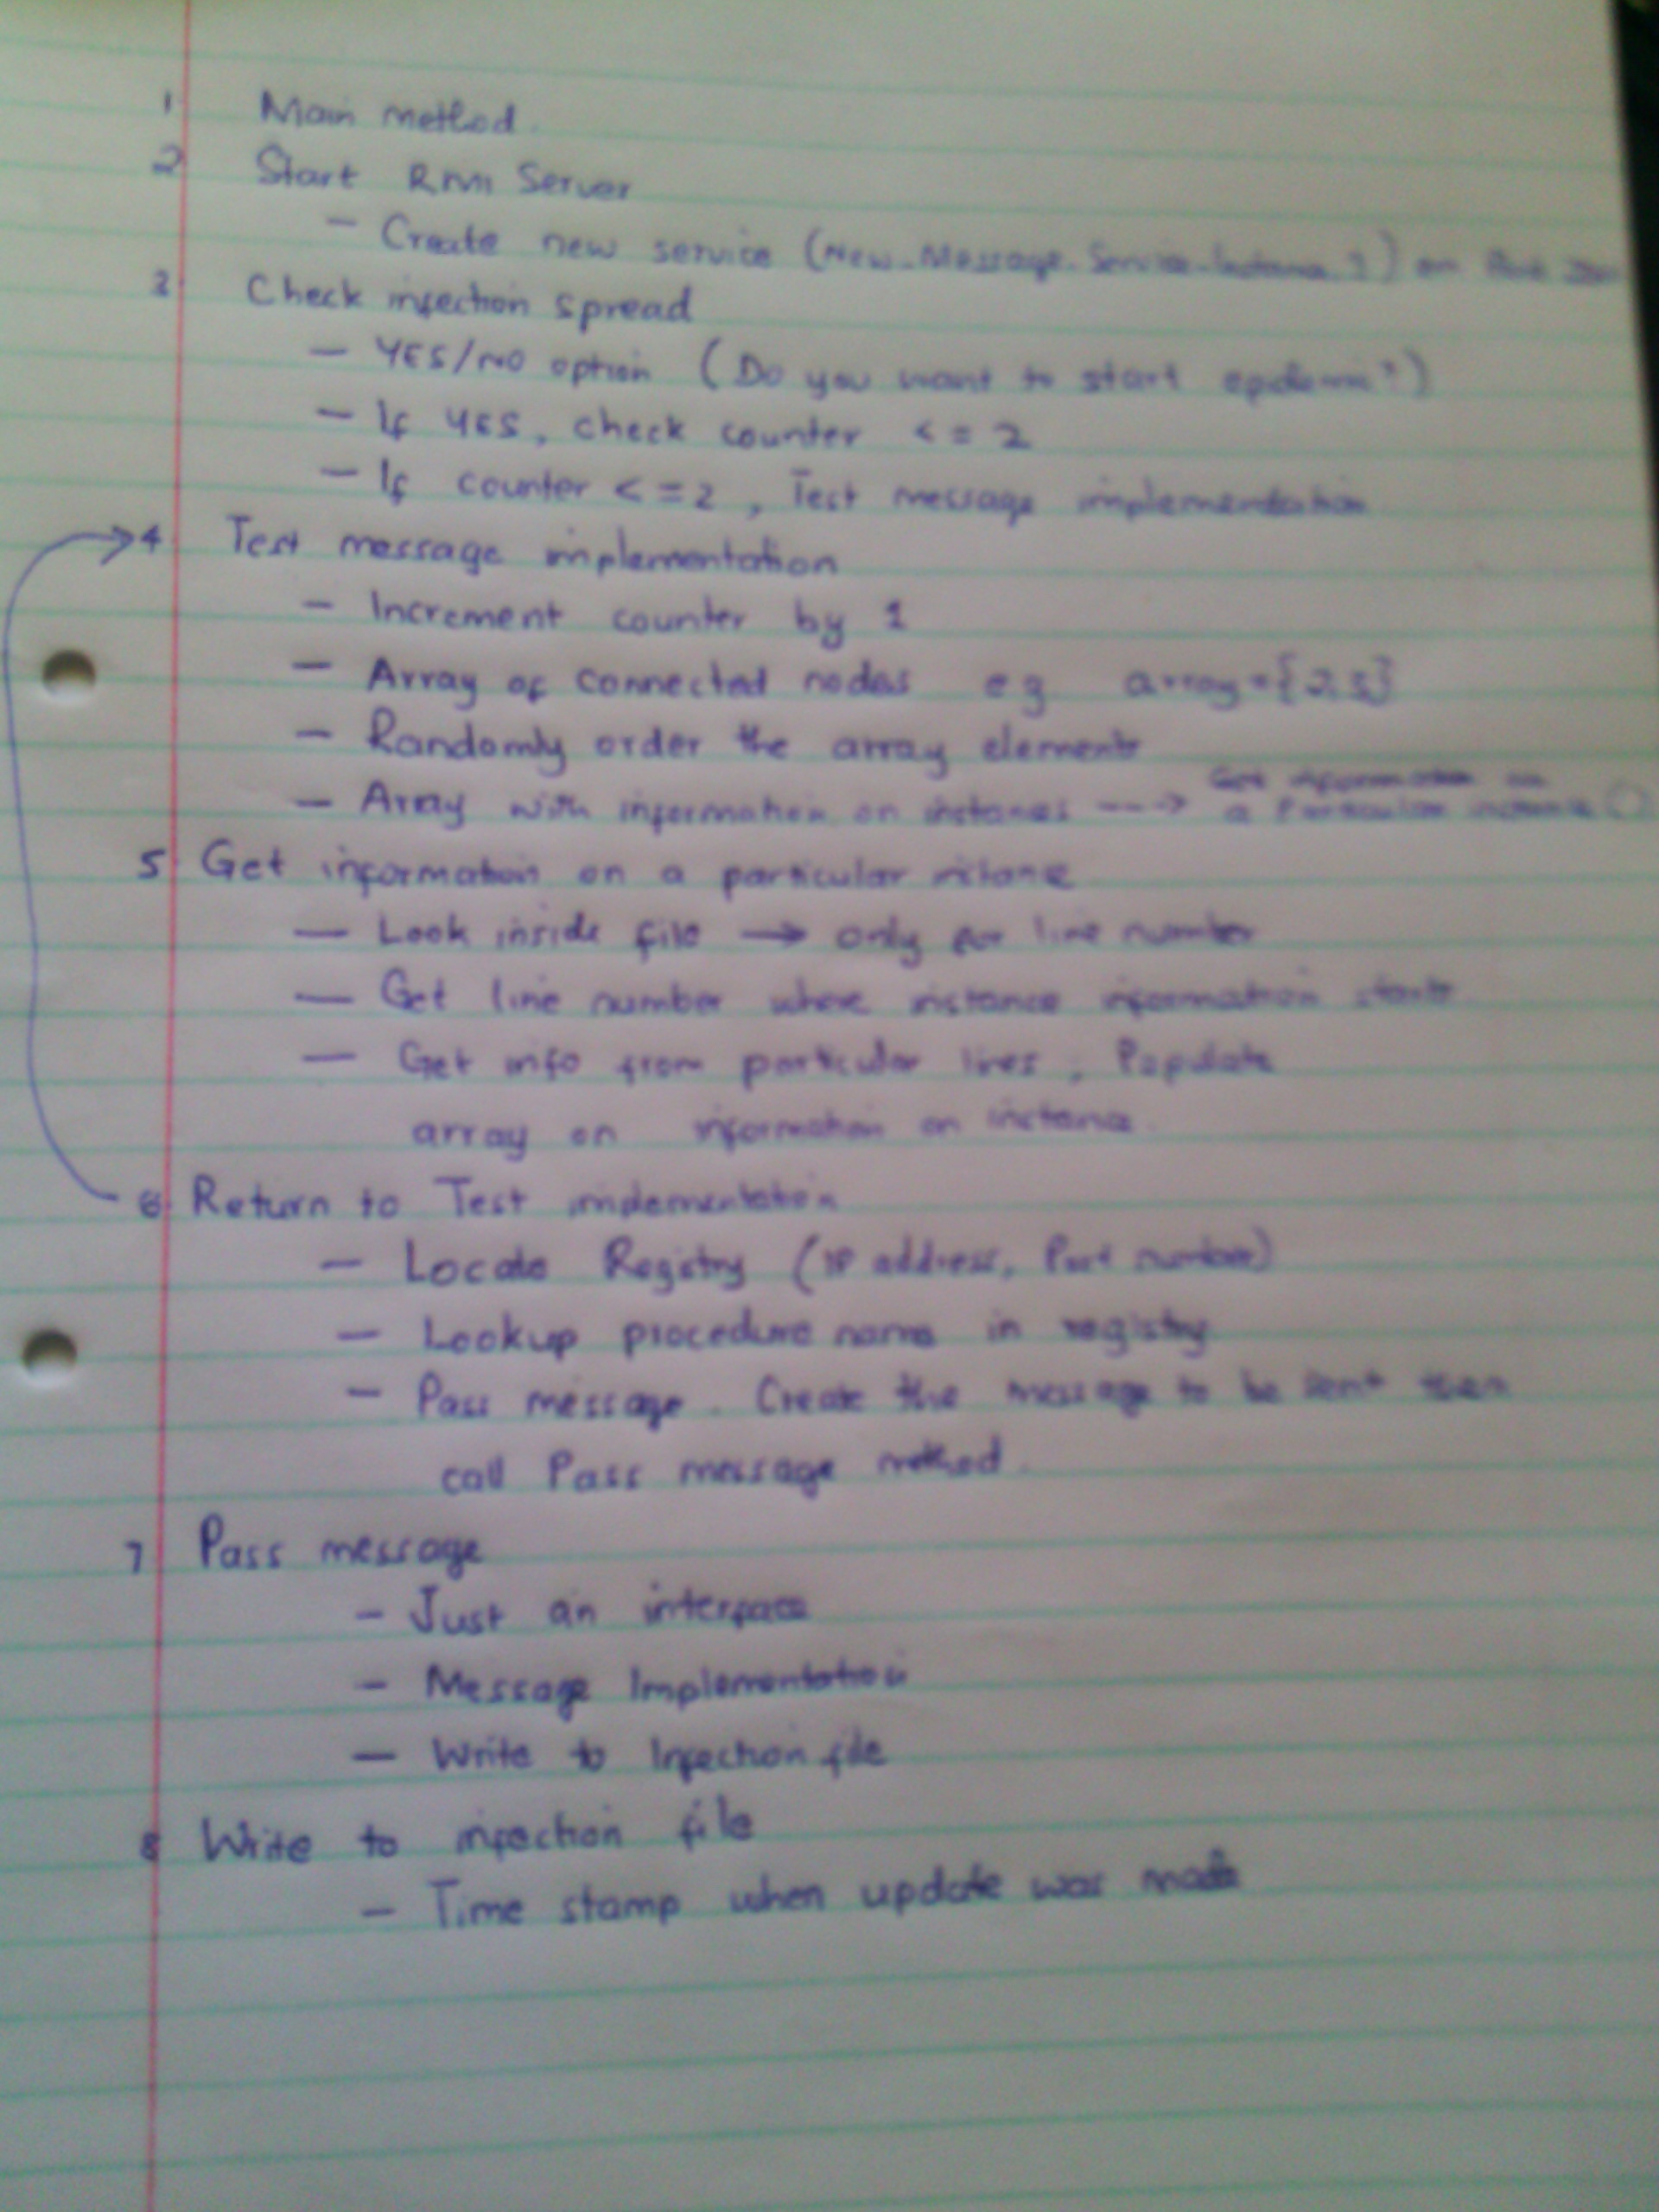 1 Main method.
2 Start RMI Server
- Create new service (New_Message_Service_Instance_ ) on Port
Check infection spread
- YES/NO option (Do you want to start epidemic?)
- If YES, check counter <= 2
- If counter <= 2, Test message implementation
4 Test message implementation
- Increment counter by 1
- Array of connected nodes eg array={2,5}
- Randomly order the array elements
- Array with information on instances ---> Get information on
a Particular instance ()
5 Get information on a particular instance
- Look inside file → only for line number
- Get line number where instance information starts
- Get info from particular lines, Populate
array on information on instance.
6 Return to Test implementation
- Locate Registry (IP address, Port number)
- Lookup procedure name in registry
- Pass message. Create the message to be sent then
call Pass message method.
7 Pass message
- Just an interface
- Message Implementation
- Write to Infection file
8 Write to infection file
- Time stamp when update was made